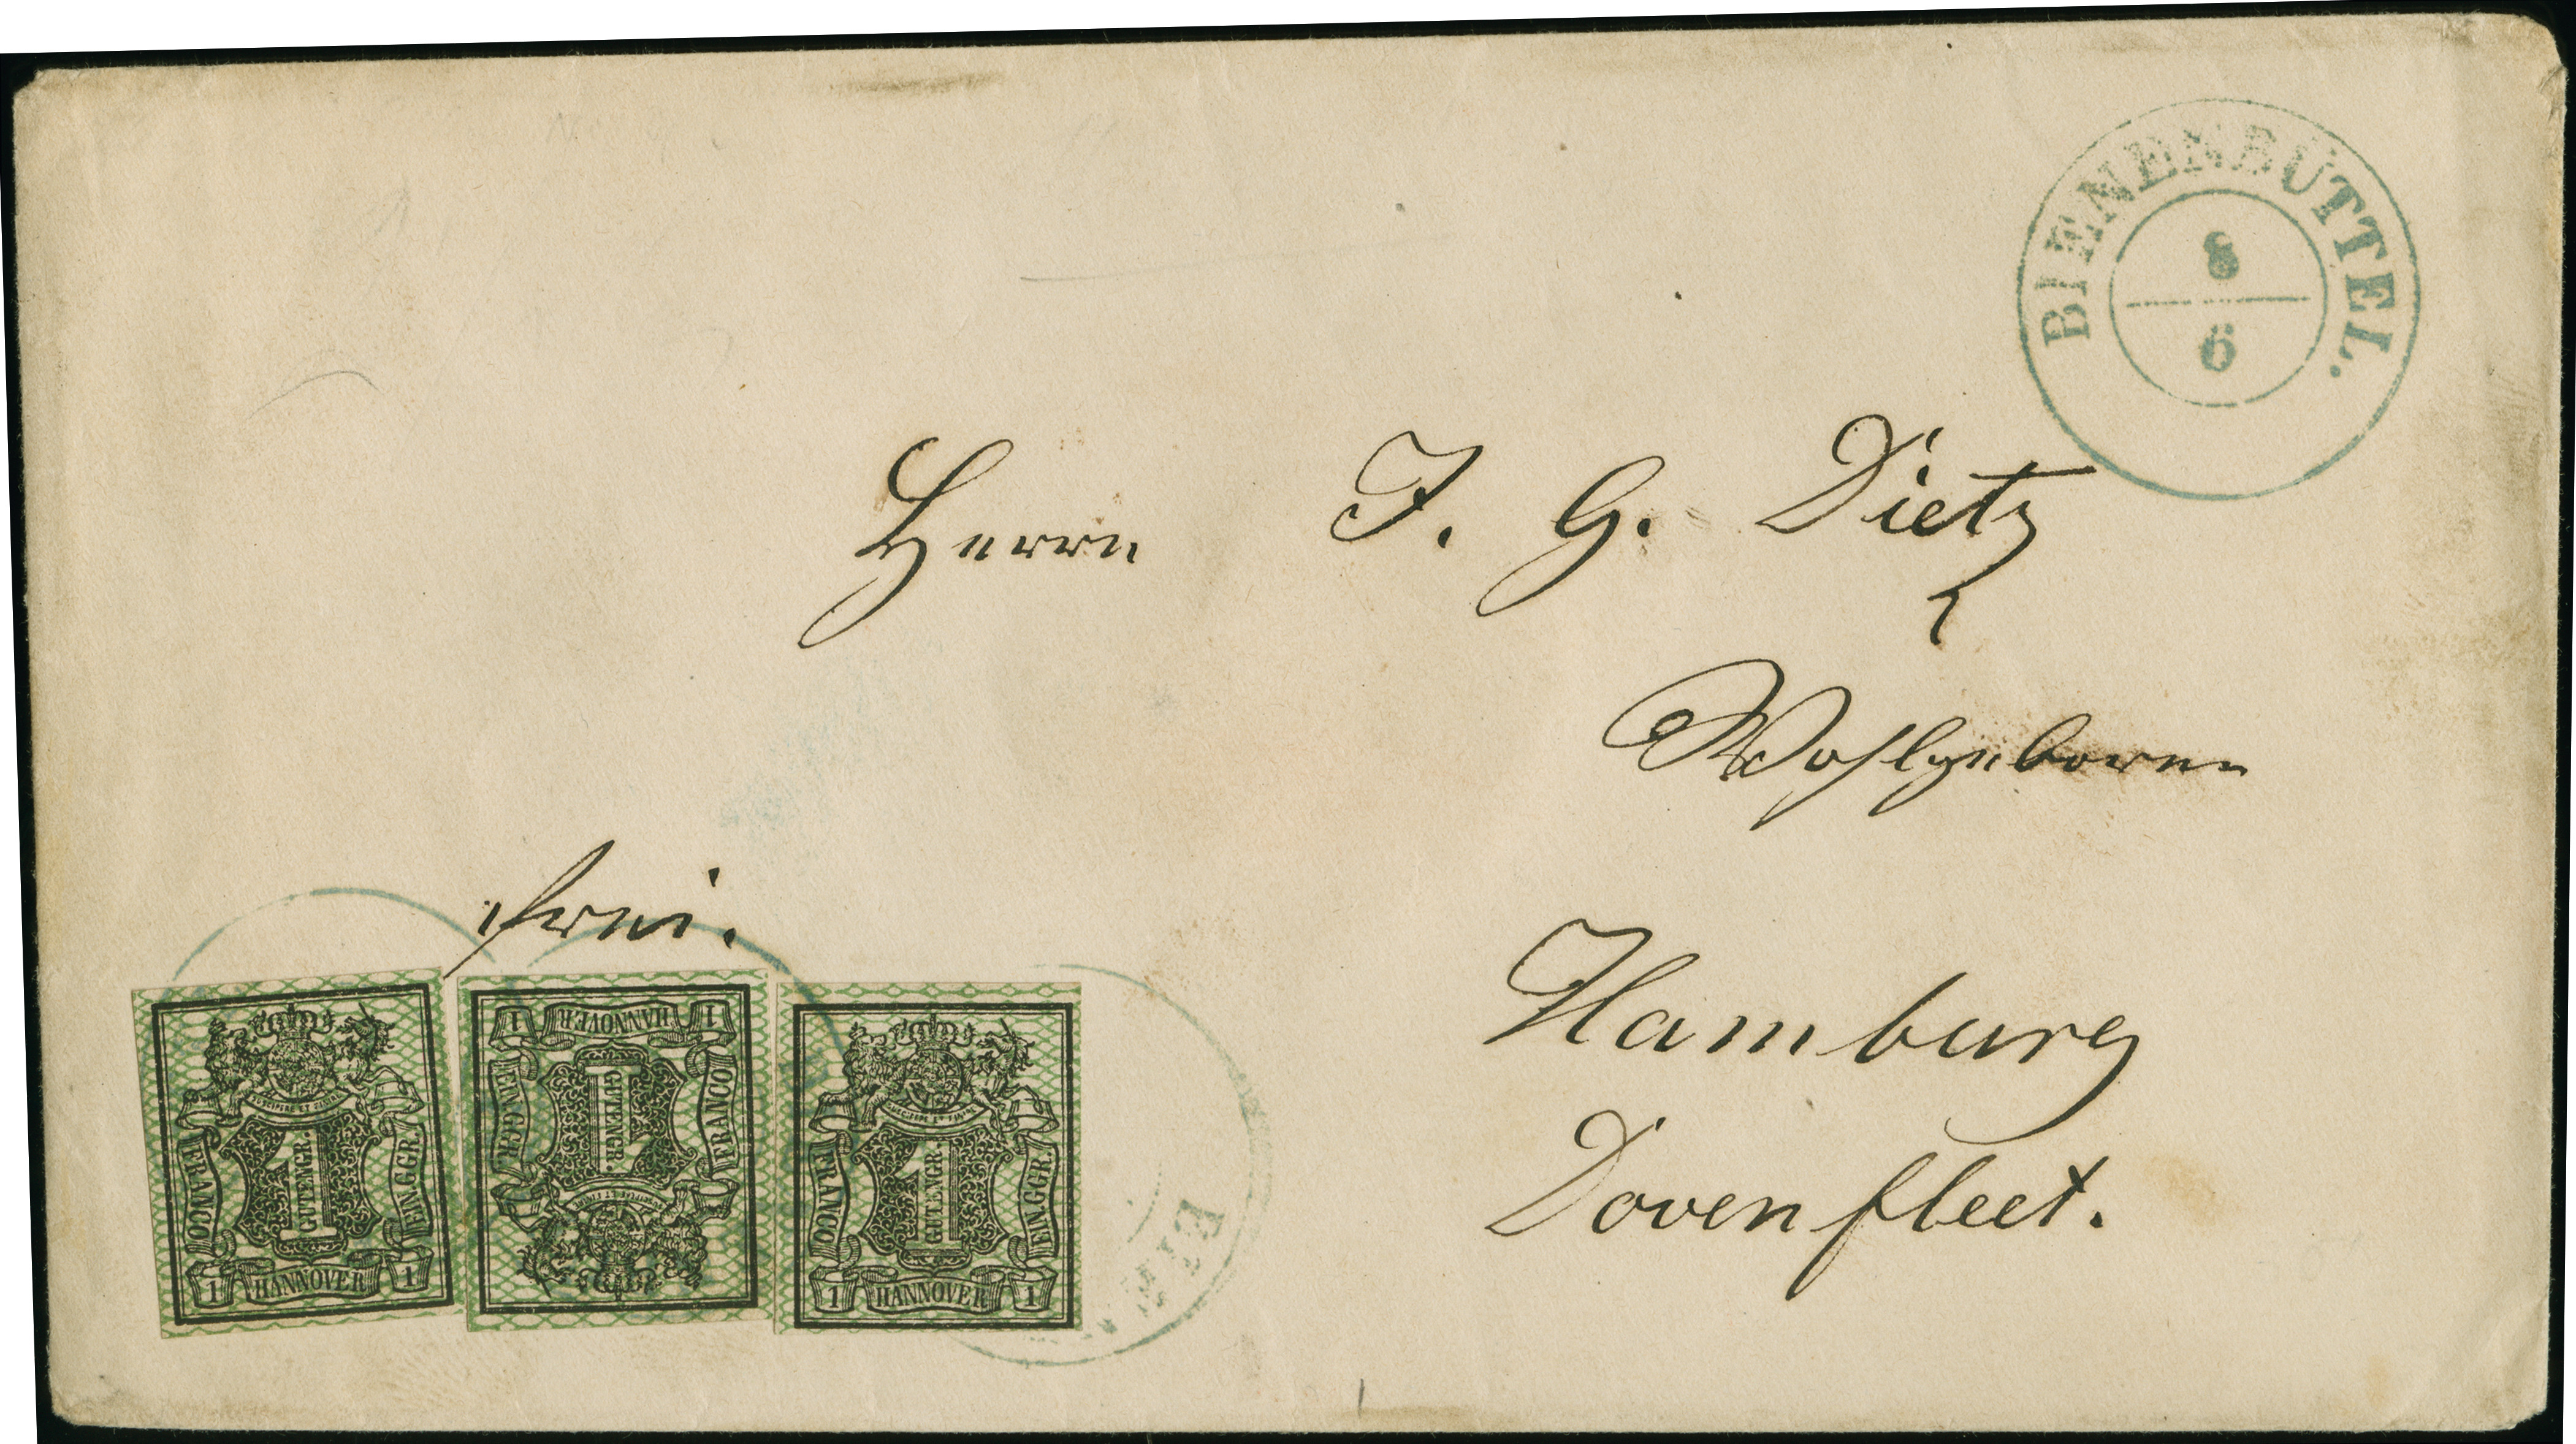 BIENENBÜTTEL.
8
6
Herrn J. G. Dietz
Wohlgeboren
frei.
Hamburg
Dovenfleet.
FRANCO
1 GUTENGR.
EIN GGR.
1 HANNOVER 1
1 HANNOVER 1
EIN GGR.
1 GUTENGR.
FRANCO
FRANCO
1 GUTENGR.
EIN GGR.
1 HANNOVER 1